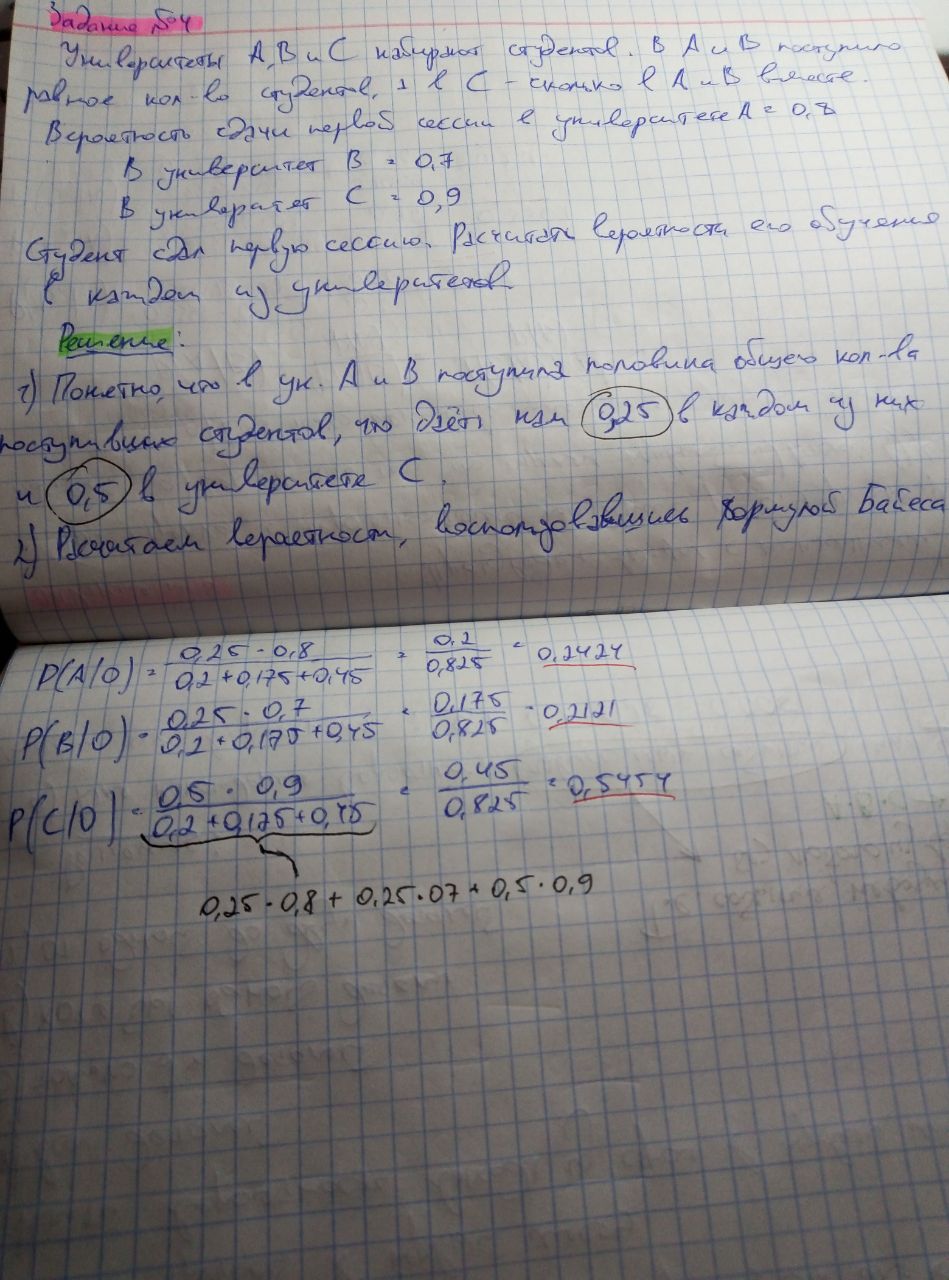 Задание №4
Университеты А, В и С набирают студентов. В А и В поступило
равное кол-во студентов, а в С - сколько в А и В вместе.
Вероятность сдачи первой сессии в университете А = 0,8
В университет В = 0,7
В универатет С = 0,9
Студент сдал первую сессию. Расчитать вероятности его обучения
в каждом из университетов
Решение:
1) Понятно, что в ун. А и В поступила половина общего кол-ва
поступивших студентов, что даёт нам 0,25 в каждом из них
и 0,5 в университете С.
2) Расчитаем вероятности, воспользовавшись формулой Байеса
P(A/O) = 0,25 · 0,8 / 0,2 + 0,175 + 0,45 = 0,2 / 0,825 = 0,2424
P(B/O) = 0,25 · 0,7 / 0,2 + 0,175 + 0,45 = 0,175 / 0,825 = 0,2121
P(C/O) = 0,5 · 0,9 / 0,2 + 0,175 + 0,45 = 0,45 / 0,825 = 0,5454
0,25 · 0,8 + 0,25 · 07 + 0,5 · 0,9